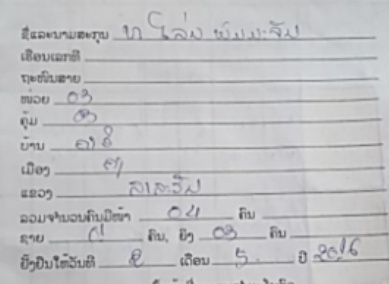 ຊື່ແລະນາມສະກຸນ ທ ໂລ່ນ ພິມມະຈັນ
ເຮືອນເລກທີ
ຖະໜົນສາຍ
ໜ່ວຍ 03
ຄຸ້ມ
ບ້ານ
ເມືອງ
ແຂວງ ສາລະວັນ
ລວມຈຳນວນຄົນມີໜ້າ 04 ຄົນ
ຊາຍ 01 ຄົນ, ຍິງ 03 ຄົນ
ຢັ້ງຢືນໃຫ້ວັນທີ 2 ເດືອນ 5 ປີ 2016